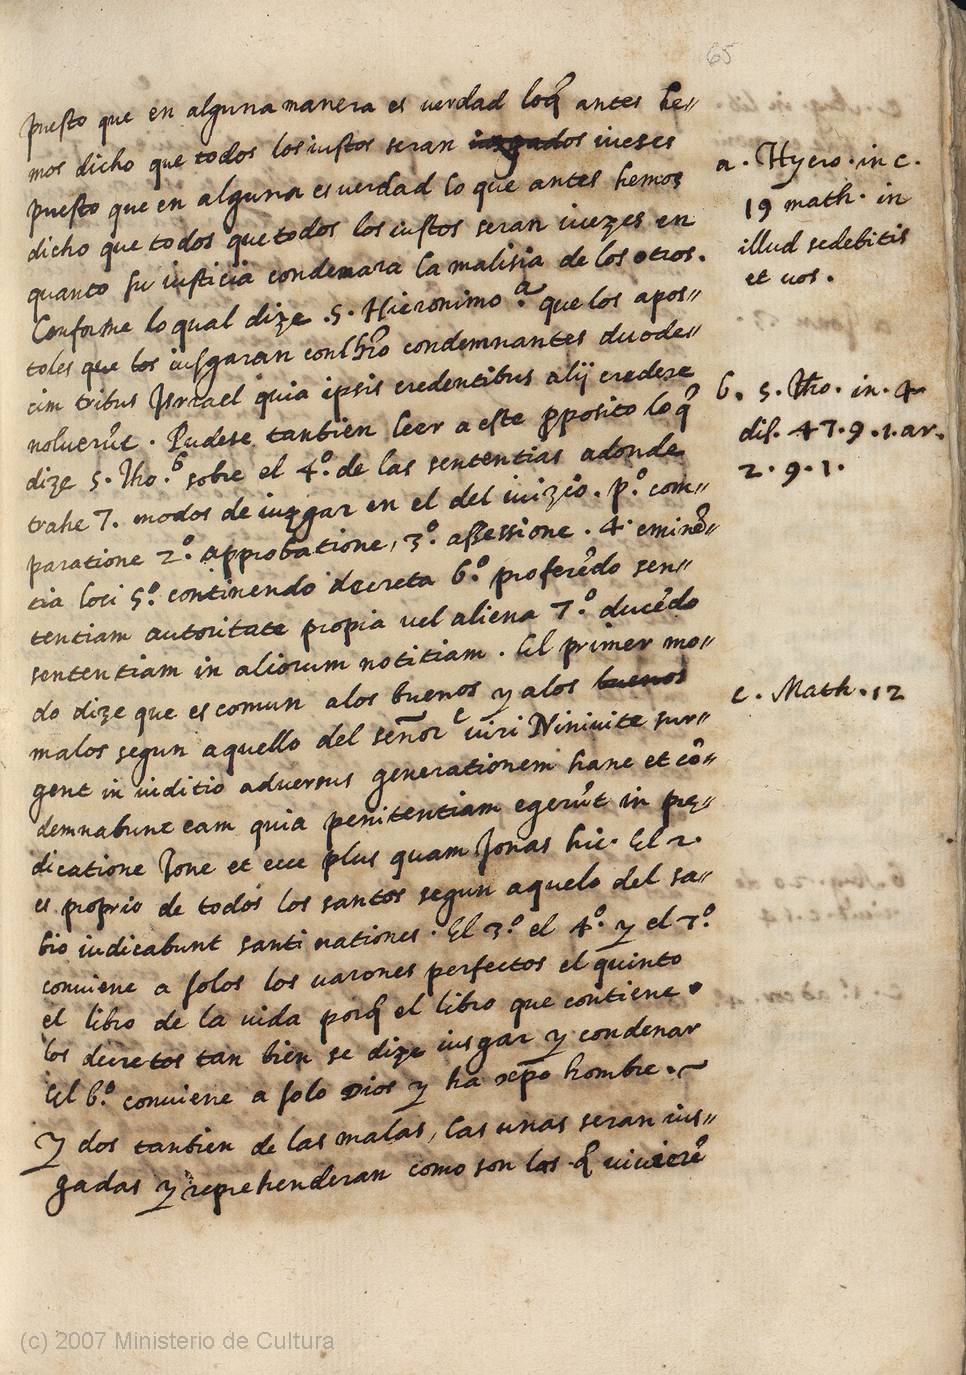 65
puesto que en alguna manera es uerdad loq̃ antes he〃
mos dicho que todos los iustos seran iuzgados iueses
puesto que en alguna es uerdad lo que antes hemos
dicho que todos que todos los iustos seran iuezes en
quanto su iusticia condenara la malisia de los otros.
Conforme lo qual dize .S. Hieronimo .a que los apos〃
toles que los iusgaran condemnantes duode〃
cim tribus Jsrrael quia ipsis credentibus alij credere
noluerũt . Pudese tantbien leer a este pposito loq̃
dize S. Tho. b sobre el 4º. de las sententias adonde
trahe 7. modos de iuzgar en el del iuizio. pº. com〃
paratione 2º. approbatione, 3º. assessione . 4. eminẽ〃
tia loci 5º. continendo decreta 6º. proferẽdo sen〃
tentiam autoritate propia uel aliena 7º. ducẽdo
sententiam in aliorum notitiam . El primer mo〃
do dize que es comun alos buenos y alos buenos
malos segun aquello del señor c uiri Niniuite sur〃
gent in iuditio aduersus generationem hanc et cõ〃
demnabunt eam quia penitentiam egerũt in prę〃
dicatione Jone et ecce plus quam Jonas hic. El 2.
es proprio de todos los santos segun aquelo del sa〃
bio iudicabunt santi nationes . El 3º. el 4º. y el 7º.
conuiene a solos los uarones perfectos el quinto
el libro de la uida porq̃ el libro que contiene
los decretos tan bien se dize iusgar y condenar
El 6º. conuiene a solo Dios y ha xp̃o hombre .~
Y dos tantien de las malas, las unas seran ius〃
gadas y reprehenderan como son los q̃ uiuierẽ
a . Hyero . in c .
19 math . in
illud sedebitis
et uos .
b . S . Tho . in . 4
dis . 47 . q . 1 . ar .
2 . q . 1 .
c . Math . 12
(c) 2007 Ministerio de Cultura